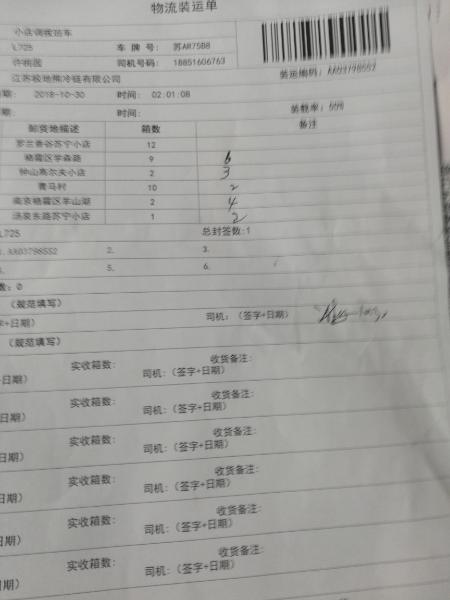 物流装运单
小店调拨运车
L725 车 牌 号: 苏AR75B8
许树国 司机号码: 18851606763
江苏极地熊冷链有限公司 装运编码: AA03798552
期: 2018-10-30 时间: 02:01:08
期: 时间: 装载率:
卸货地描述 箱数 备注
罗兰香谷苏宁小店 12
栖霞区学森路 9 6
钟山高尔夫小店 2 3
青马村 10 2
南京栖霞区羊山湖 2 4
汤泉东路苏宁小店 1 2
L725 总封签数:1
1.AA03798552 2. 3.
4. 5. 6.
数: 0
(规范填写)
字+日期) 司机: (签字+日期)
(规范填写)
实收箱数: 收货备注:
+日期) 司机: (签字+日期)
实收箱数: 收货备注:
+日期) 司机: (签字+日期)
实收箱数: 收货备注:
日期) 司机: (签字+日期)
实收箱数: 收货备注:
日期) 司机: (签字+日期)
实收箱数: 收货备注:
日期) 司机: (签字+日期)
实收箱数: 收货备注:
日期) 司机: (签字+日期)